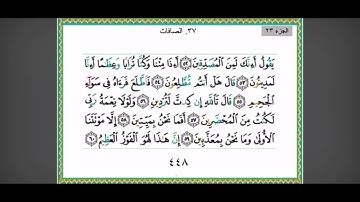 الجزء ٢٣
٣٧. الصافات
يَقُولُ أَءِنَّكَ لَمِنَ ٱلْمُصَدِّقِينَ ۝٥٢ أَءِذَا مِتْنَا وَكُنَّا تُرَابًا وَعِظَٰمًا أَءِنَّا
لَمَدِينُونَ ۝٥٣ قَالَ هَلْ أَنتُم مُّطَّلِعُونَ ۝٥٤ فَٱطَّلَعَ فَرَءَاهُ فِى سَوَآءِ
ٱلْجَحِيمِ ۝٥٥ قَالَ تَٱللَّهِ إِن كِدتَّ لَتُرْدِينِ ۝٥٦ وَلَوْلَا نِعْمَةُ رَبِّى
لَكُنتُ مِنَ ٱلْمُحْضَرِينَ ۝٥٧ أَفَمَا نَحْنُ بِمَيِّتِينَ ۝٥٨ إِلَّا مَوْتَتَنَا
ٱلْأُولَىٰ وَمَا نَحْنُ بِمُعَذَّبِينَ ۝٥٩ إِنَّ هَٰذَا لَهُوَ ٱلْفَوْزُ ٱلْعَظِيمُ ۝٦٠
٤٤٨